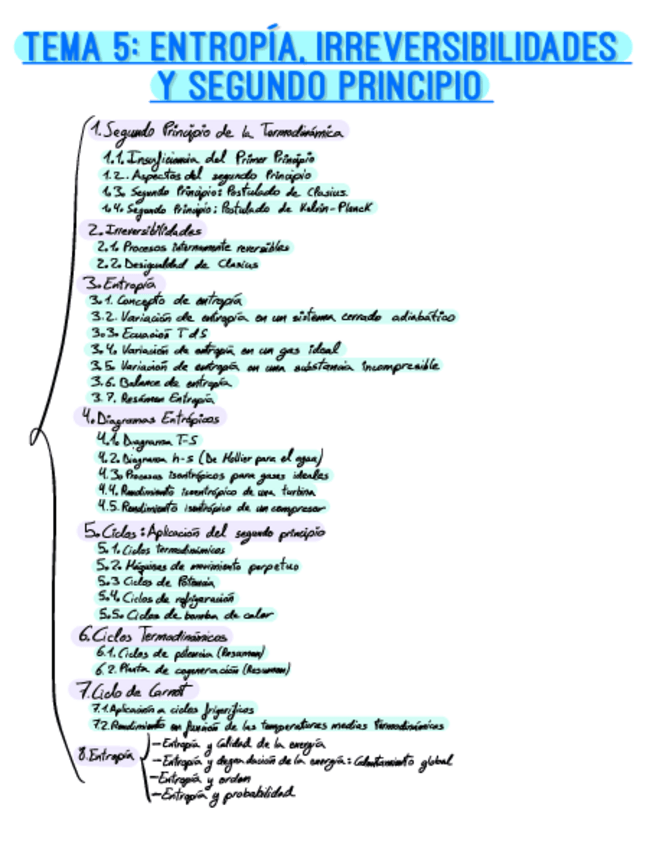 TEMA 5: ENTROPÍA, IRREVERSIBILIDADES
Y SEGUNDO PRINCIPIO
1. Segundo Principio de la Termodinámica
1.1. Insuficiencia del Primer Principio
1.2. Aspectos del segundo Principio
1.3. Segundo Principio: Postulado de Clasius
1.4. Segundo Principio: Postulado de Kelvin-Planck
2. Irreversibilidades
2.1. Procesos internamente reversibles
2.2. Desigualdad de Clasius
3. Entropía
3.1. Concepto de entropía
3.2. Variación de entropía en un sistema cerrado adiabático
3.3. Ecuación T dS
3.4. Variación de entropía en un gas ideal
3.5. Variación de entropía en una substancia incompresible
3.6. Balance de entropía
3.7. Resúmen Entropía
4. Diagramas Entrópicos
4.1. Diagrama T-S
4.2. Diagrama h-s (De Mollier para el agua)
4.3. Procesos isentrópicos para gases ideales
4.4. Rendimiento isoentrópico de una turbina
4.5. Rendimiento isentrópico de un compresor
5. Ciclos: Aplicación del segundo principio
5.1. Ciclos termodinámicos
5.2. Máquinas de movimiento perpetuo
5.3 Ciclos de Potencia
5.4. Ciclos de refrigeración
5.5. Ciclos de bomba de calor
6. Ciclos Termodinámicos
6.1. Ciclos de potencia (Resumen)
6.2. Planta de cogeneración (Resumen)
7. Ciclo de Carnot
7.1. Aplicación a ciclos frigoríficos
7.2. Rendimiento en función de las temperaturas medias termodinámicas
8. Entropía
- Entropía y calidad de la energía
- Entropía y degradación de la energía: Calentamiento global
- Entropía y orden
- Entropía y probabilidad